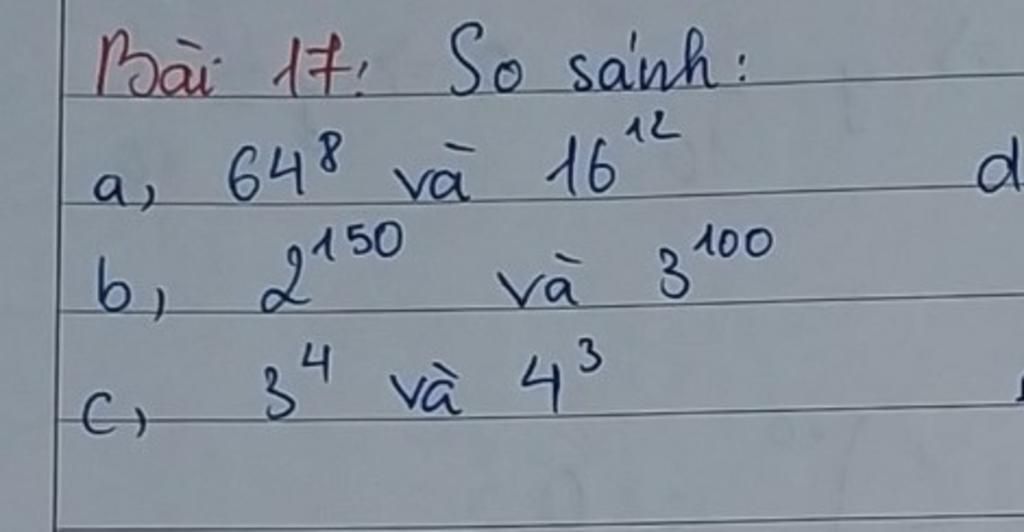 Bài 17: So sánh:
a, 64⁸ và 16¹² d
b, 2¹⁵⁰ và 3¹⁰⁰
c, 3⁴ và 4³